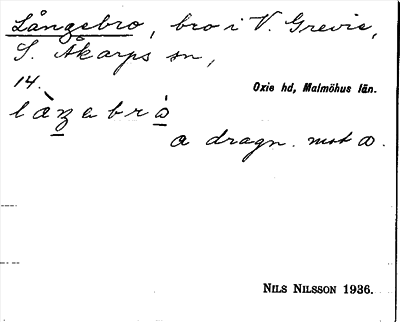 Långebro, bro i V. Grevie,
S. Åkarps sn,
14.
Oxie hd, Malmöhus län.
a dragn. mot
NILS NILSSON 1936.